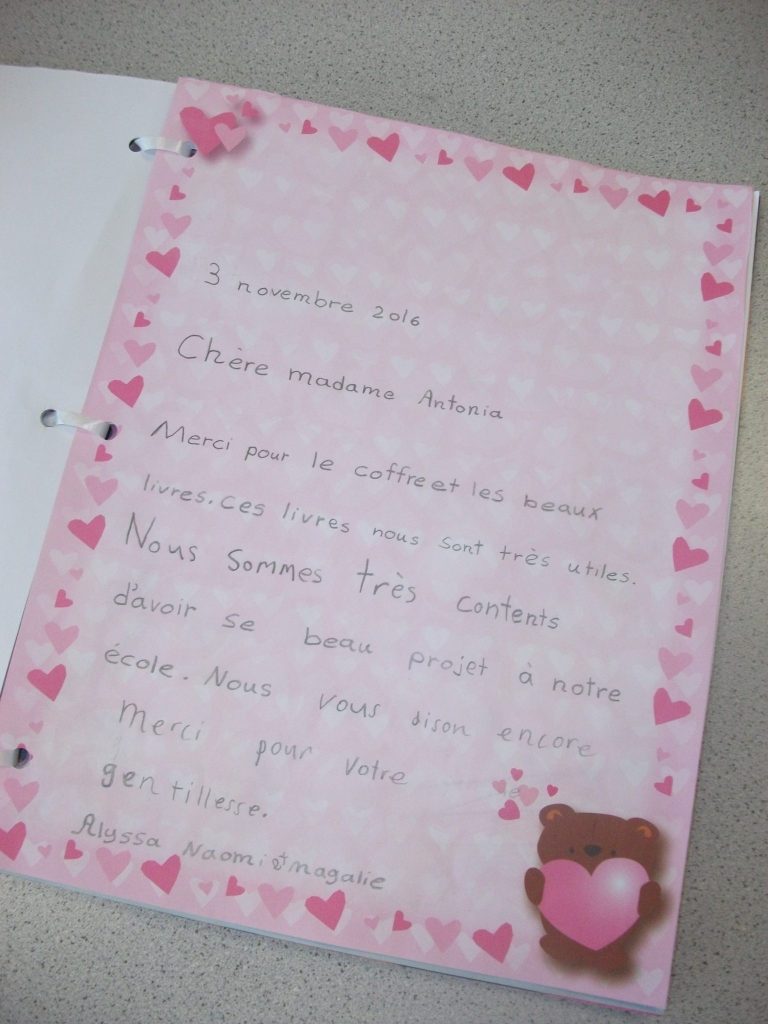 3 novembre 2016
Chère madame Antonia
Merci pour le coffre et les beaux
livres. Ces livres nous sont très utiles.
Nous sommes très contents
d'avoir se beau projet à notre
école. Nous vous dison encore
Merci pour votre
gentillesse.
Alyssa Naomi et magalie